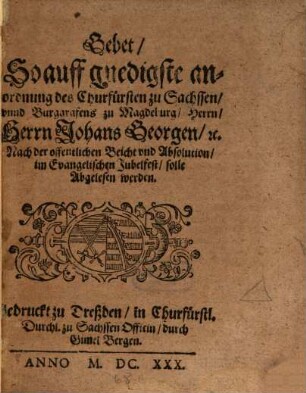 Gebet/
So auff gnedigste an-
ordnung des Churfürsten zu Sachssen/
vnnd Burggrafens zu Magdeburg/ Herrn/
Herrn Johans Georgen/ ꝛc.
Nach der offentlichen Beicht vnd Absolution/
im Evangelischen Jubelfest/ solle
Abgelesen werden.
Gedruckt zu Dreßden/ in Churfürstl.
Durchl. zu Sachssen Officin/ durch
Gimel Bergen.
ANNO M. DC. XXX.